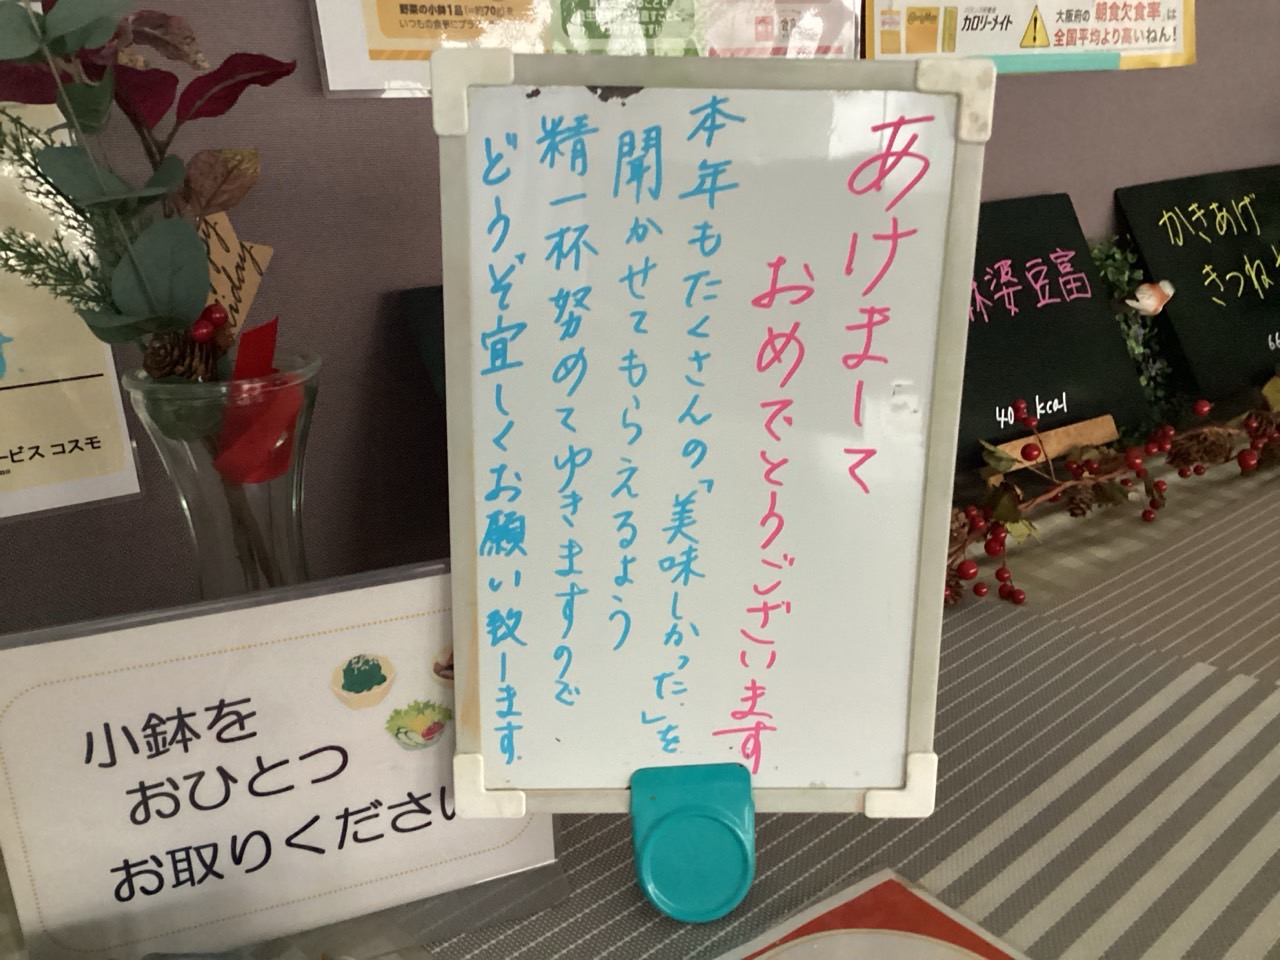 あけまして
おめでとうございます
本年もたくさんの「美味しかった」を
聞かせてもらえるよう
精一杯努めてゆきますので
どうぞ宜しくお願い致します.
小鉢を
おひとつ
お取りください
野菜の小鉢1品(=約70g)を
いつもの食事にプラス
カロリーメイト
大阪府の 朝食欠食率は
全国平均より高いねん!
婆豆富
kcal
かきあげ
きつね
ービス コスモ